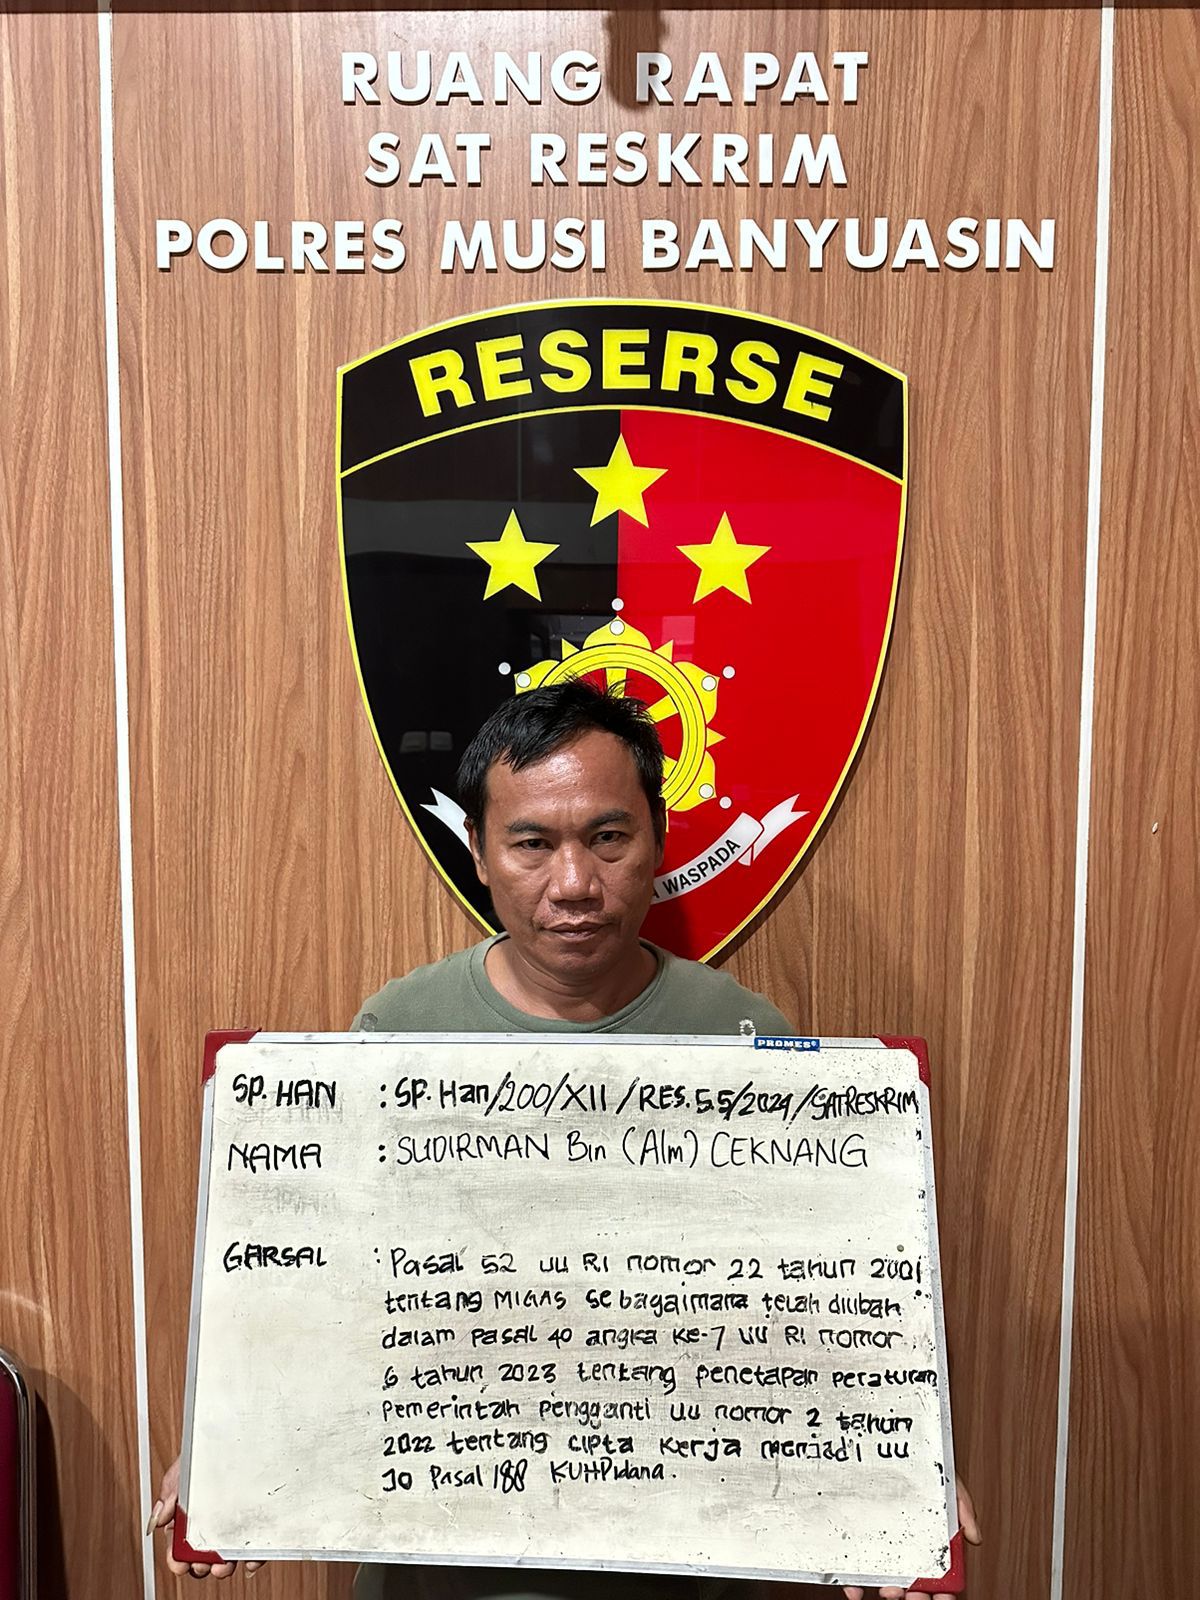 RUANG RAPAT
SAT RESKRIM
POLRES MUSI BANYUASIN
RESERSE
WASPADA
PROMES
SP. HAN : SP. Han/200/XII/RES.5.5/2024/SATRESKRIM
NAMA : SUDIRMAN Bin (Alm) CEKNANG
GARSAL : Pasal 52 UU RI nomor 22 tahun 2001
tentang MIGAS sebagaimana telah diubah
dalam pasal 40 angka ke-7 UU RI nomor
6 tahun 2023 tentang penetapan peraturan
pemerintah pengganti UU nomor 2 tahun
2022 tentang cipta kerja menjadi UU
JO Pasal 188 KUHPidana.